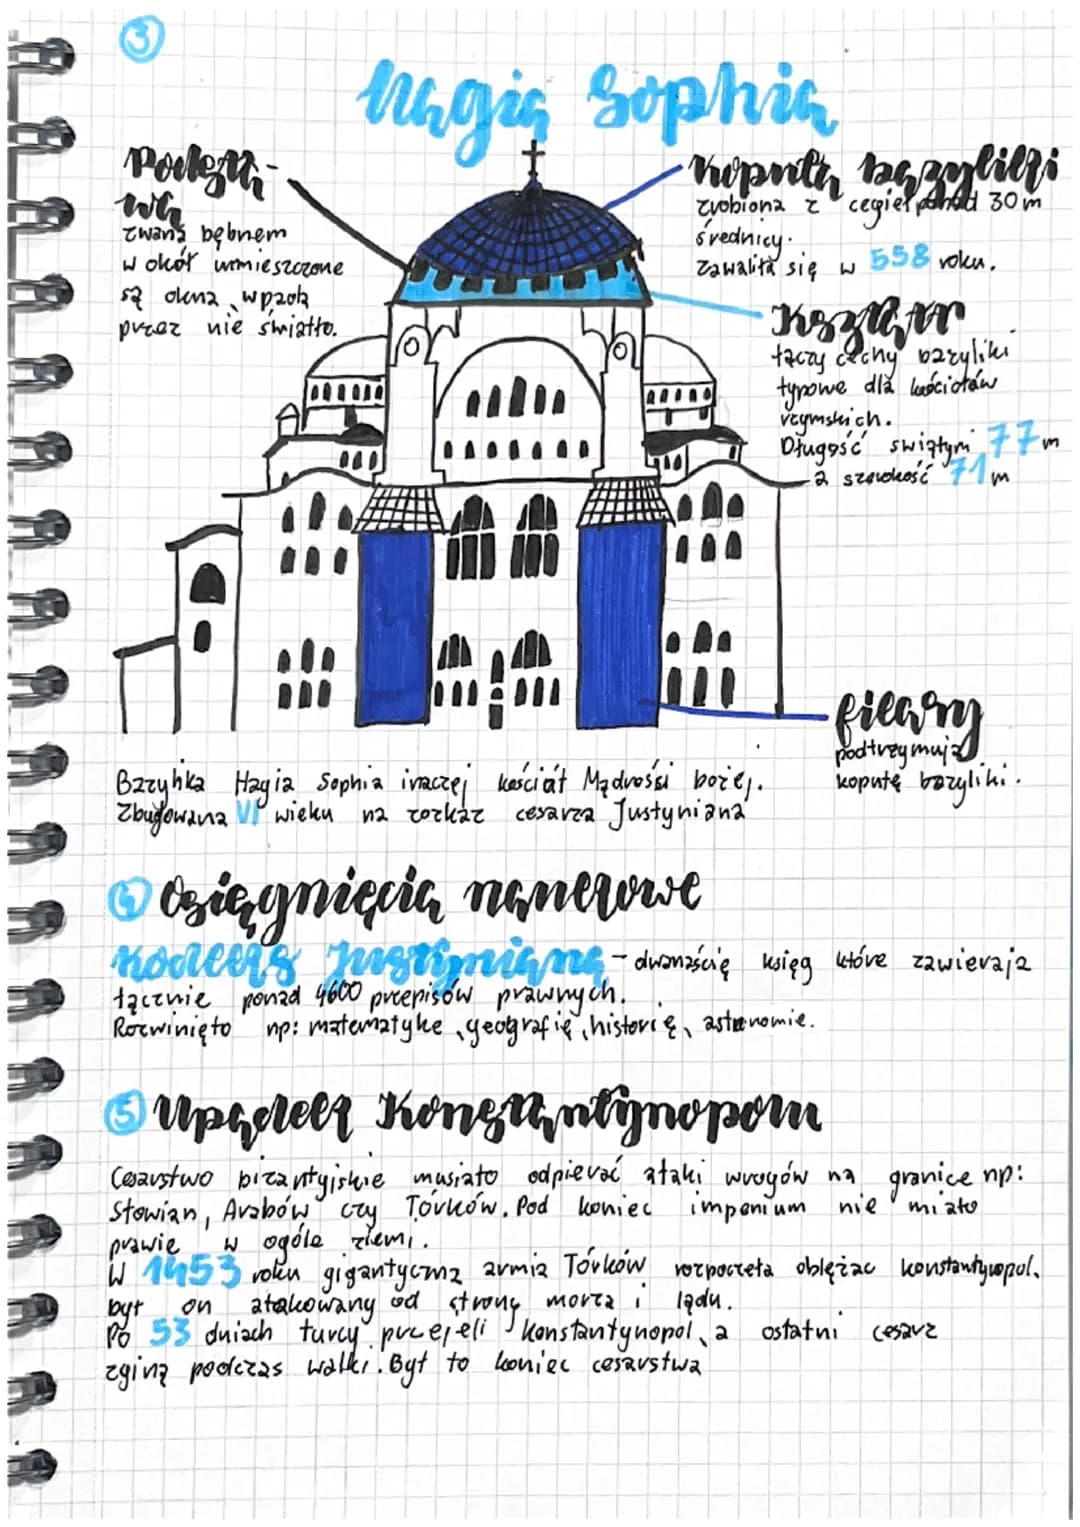 3
Hagia Sophia
Podsta-
wa
zwana bębnem
w okół urmieszczone
są okna, wpada
przez nie światło.
Kopuła bazyliki
zrobiona z cegieł ponad 30 m
średnicy.
Zawaliła się w 558 roku.
Kształt
łączy cechy bazyliki
typowe dla kościołów
rzymskich.
Długość swiątyni 77 m
a szerokość 71 m
filary
podtrzymują
kopułę bazyliki.
Bazylika Hagia Sophia inaczej kościół Mądrości bożej.
Zbudowana VI wieku na rozkaz cesarza Justyniana
4 Osiągnięcia naukowe
Kodeks Justyniana - dwanaście ksiąg które zawierają
łącznie ponad 4600 przepisów prawnych.
Rozwinięto np: matematykę, geografię, historię, astronomie.
5 Upadek Konstantynopolu
Cesarstwo bizantyjskie musiało odpierać ataki wrogów na granice np:
Słowian, Arabów czy Tórków. Pod koniec imperium nie miało
prawie w ogóle ziemi.
W 1453 roku gigantyczna armia Tórków rozpoczeła oblężac konstantynopol.
był on atakowany od strony morza i lądu.
Po 53 dniach turcy przejeli konstantynopol, a ostatni cesarz
zginą podczas walki. Był to koniec cesarstwa